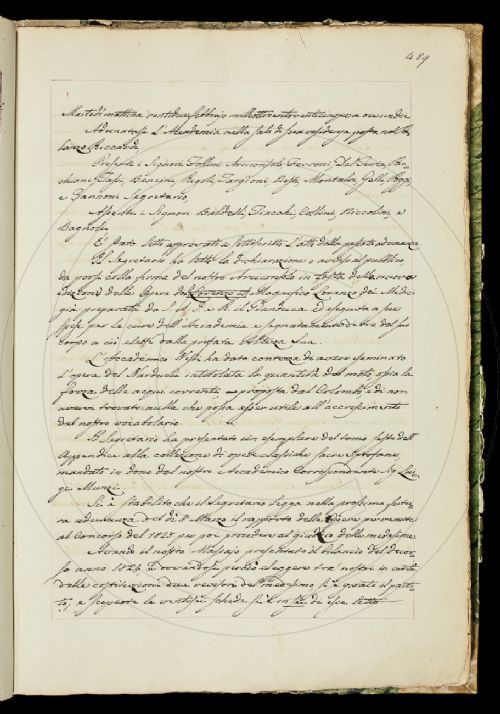 489
Martedì mattina ventidue febbraio milleottocentoventicinque a ore undici
Adunatasi l'Accademia nella sala di sua residenza posta nel Pa-
lazzo Riccardi
Presenti i Signori Follini Arciconsolo Ferroni Del Furia Bec-
chi Sarchiani, Tassi, Bencini, Rigoli, Targioni, Nesti, Montalvi, Gelli, Poggi
e Zannoni Segretario,
Assenti i Signori Baldelli, Fiacchi, Collini, Niccolini e
Pagnozzi
È stato letto approvato e sottoscritto l'atto della passata adunanza
Il Segretario ha letto la dichiarazione o avviso al pubblico,
da porsi colla firma del nostro Arciconsolo in testa della nuova
edizione delle Opere del Magnifico Lorenzo dei Medi-
ci preparata da S. A. I. e R. il Granduca ed eseguita a sue
spese per le cure dell'Accademia e segnatamente di tre del suo
Corpo a ciò eletti dalla prefata Altezza Sua.
L'Accademico Tassi ha dato contezza di avere esaminato
l'opera del Narducci intitolata la quantità del moto ossia la
forza delle acque correnti, proposta dal Colombo, e di non
avervi trovato nulla che possa esser utile all'accrescimento
del nostro vocabolario.
Il Segretario ha presentato un esemplare del tomo sesto dell'
Appendice alla collezione di opere classiche sacre
mandati in dono dal nostro Accademico Corrispondente Sig. Lui-
gi Muzzi.
Si è stabilito che il Segretario legga nella prossima futu-
ra adunanza del dì 8 Marzo il rapporto delle Opere presentate
al Concorso del 1825 per poi procedere al giudizio delle medesime.
Avendo il nostro Massajo presentato il bilancio del decor-
so anno 1824 e dovendosi perciò eleggere tra' nostri in virtù
delle costituzioni due revisori del medesimo si è girato il parti-
to, e